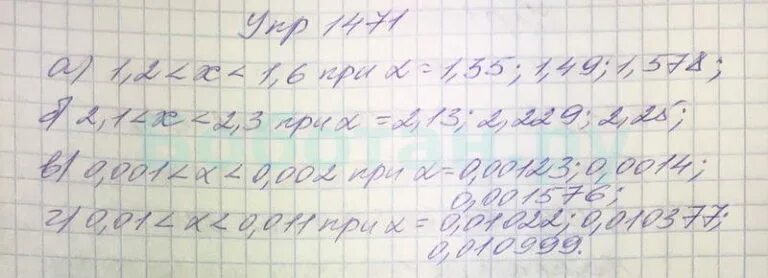 Упр 1471
а) 1,2 < x < 1,6 при x = 1,35; 1,49; 1,578;
б) 2,1 < x < 2,3 при x = 2,13; 2,229; 2,25;
в) 0,001 < x < 0,002 при x = 0,00123; 0,0014;
0,001576;
г) 0,01 < x < 0,011 при x = 0,01022; 0,010377;
0,010999.